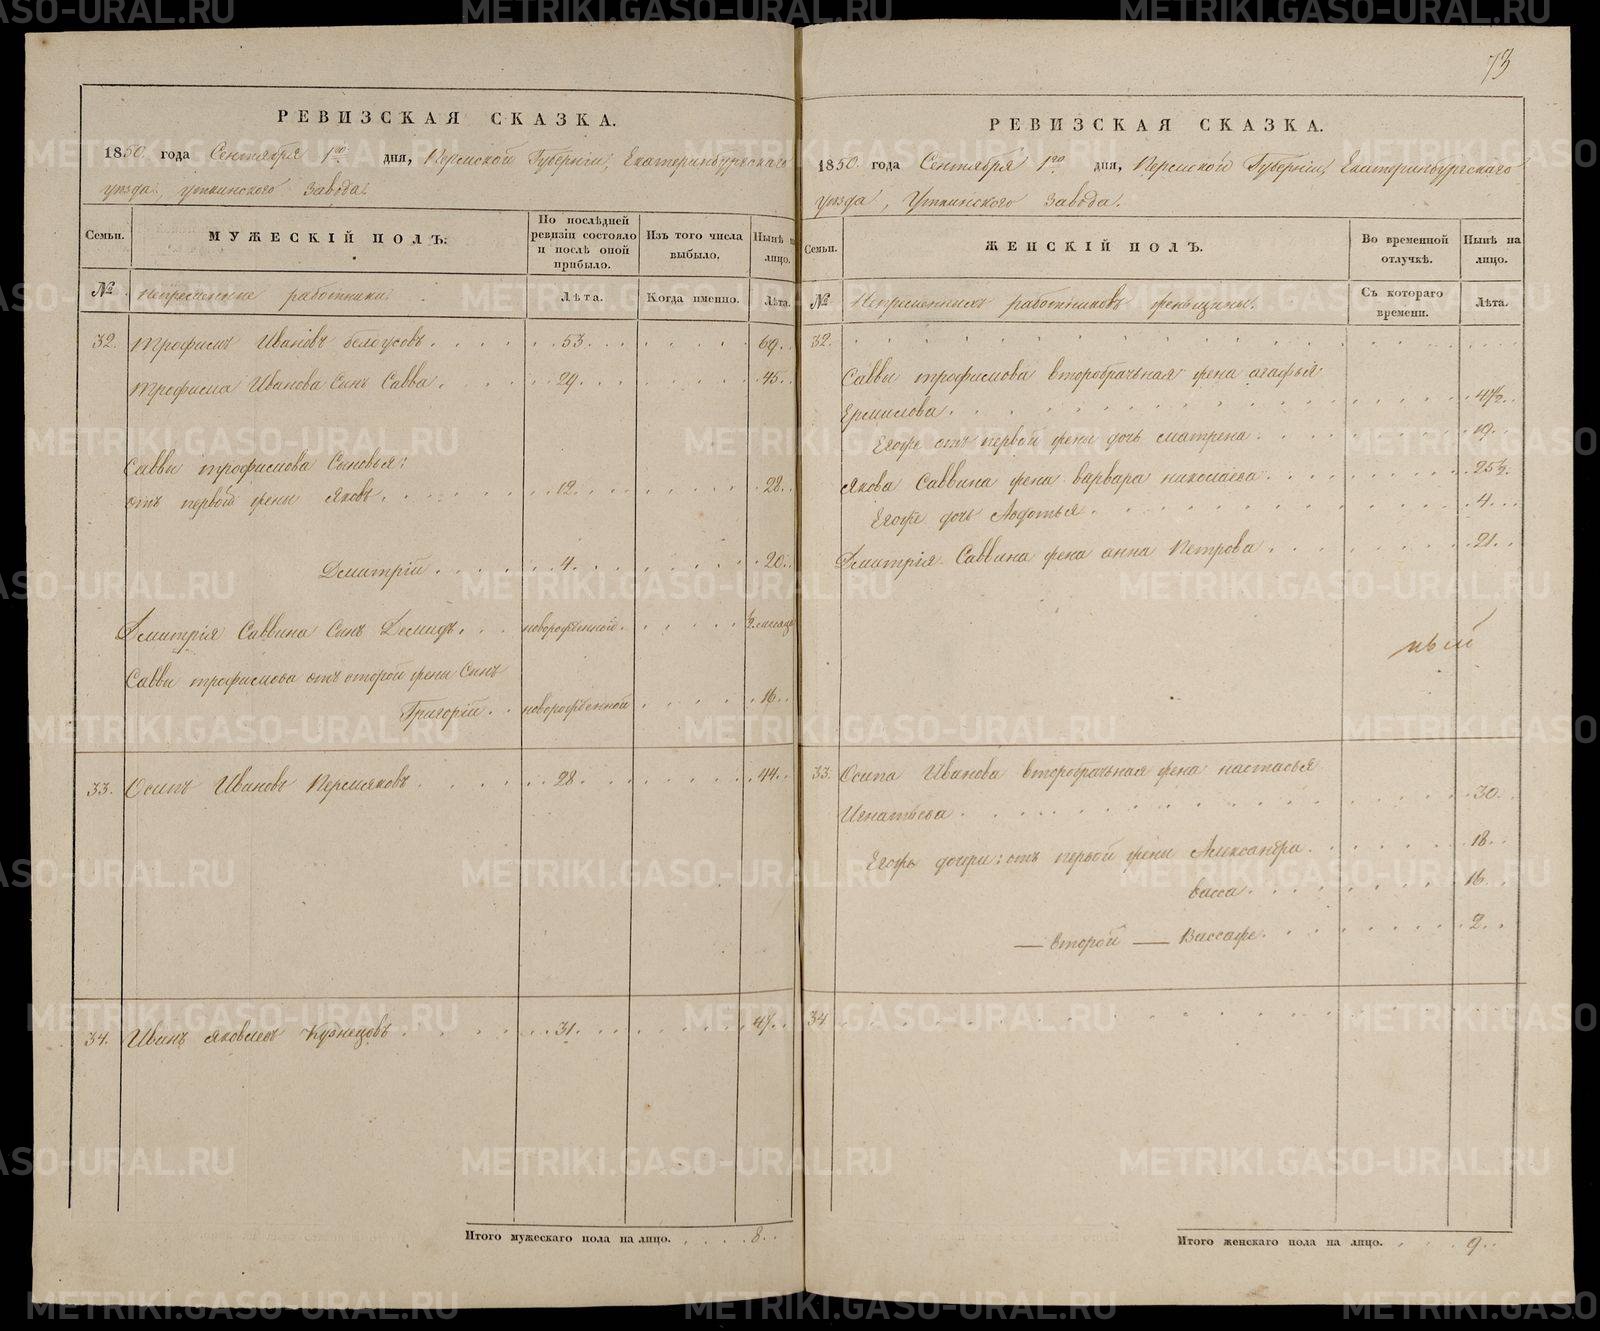 73
РЕВИЗСКАЯ СКАЗКА.
1850. года Сентября 1го дня, Пермской Губернiи, Екатеринбургскаго
уезда, уткинского Завода.
Семьи.
МУЖЕСКIЙ ПОЛЪ.
По послѣдней ревизiи состояло и послѣ оной прибыло.
Изъ того числа выбыло.
Нынѣ на лицо.
№
непременные работники.
Лѣта.
Когда именно.
Лѣта.
32. Трофимъ Ивановъ белоусовъ. 53. 69.
Трофима Иванова Сынъ Савва. 29. 45.
Саввы трофимова Сыновья:
отъ первой жены Яковъ. 12. 28.
Дмитрiй. 4. 20.
Дмитрiя Саввина Сынъ Демидъ. новорожденной. 1/2 месяца
Саввы трофимова отъ второй жены Сынъ
Григорiй. новорожденной 16.
33. Осипъ Ивановъ Пермяковъ. 28. 44.
34. Иванъ яковлевъ Кузнецовъ. 31. 47.
Итого мужескаго пола на лицо. 8.
РЕВИЗСКАЯ СКАЗКА.
1850. года Сентября 1го дня, Пермской Губернiи, Екатеринбургскаго
уезда, Уткинского Завода.
Семьи.
ЖЕНСКIЙ ПОЛЪ.
Во временной отлучкѣ.
Нынѣ на лицо.
№
Непременныхъ работниковъ женьщины.
Съ котораго времени.
Лѣта.
32.
Саввы трофимова второбрачьная жена агафья
Ермилова. 47 1/2.
Егоже отъ первой жены дочь матрена. 19.
Якова Саввина жена варвара николаева. 25 1/2.
Егоже дочь Авдотья. 4.
Дмитрiя Саввина жена анна Петрова. 21.
33. Осипа Иванова второбрачьная жена настасья
Игнатьева. 30.
Егожъ дочери: отъ первой жены Александра. 18.
васса. 16.
— второй — Вассаже. 2.
34
Итого женскаго пола на лицо. 9.
METRIKI.GASO-URAL.RU